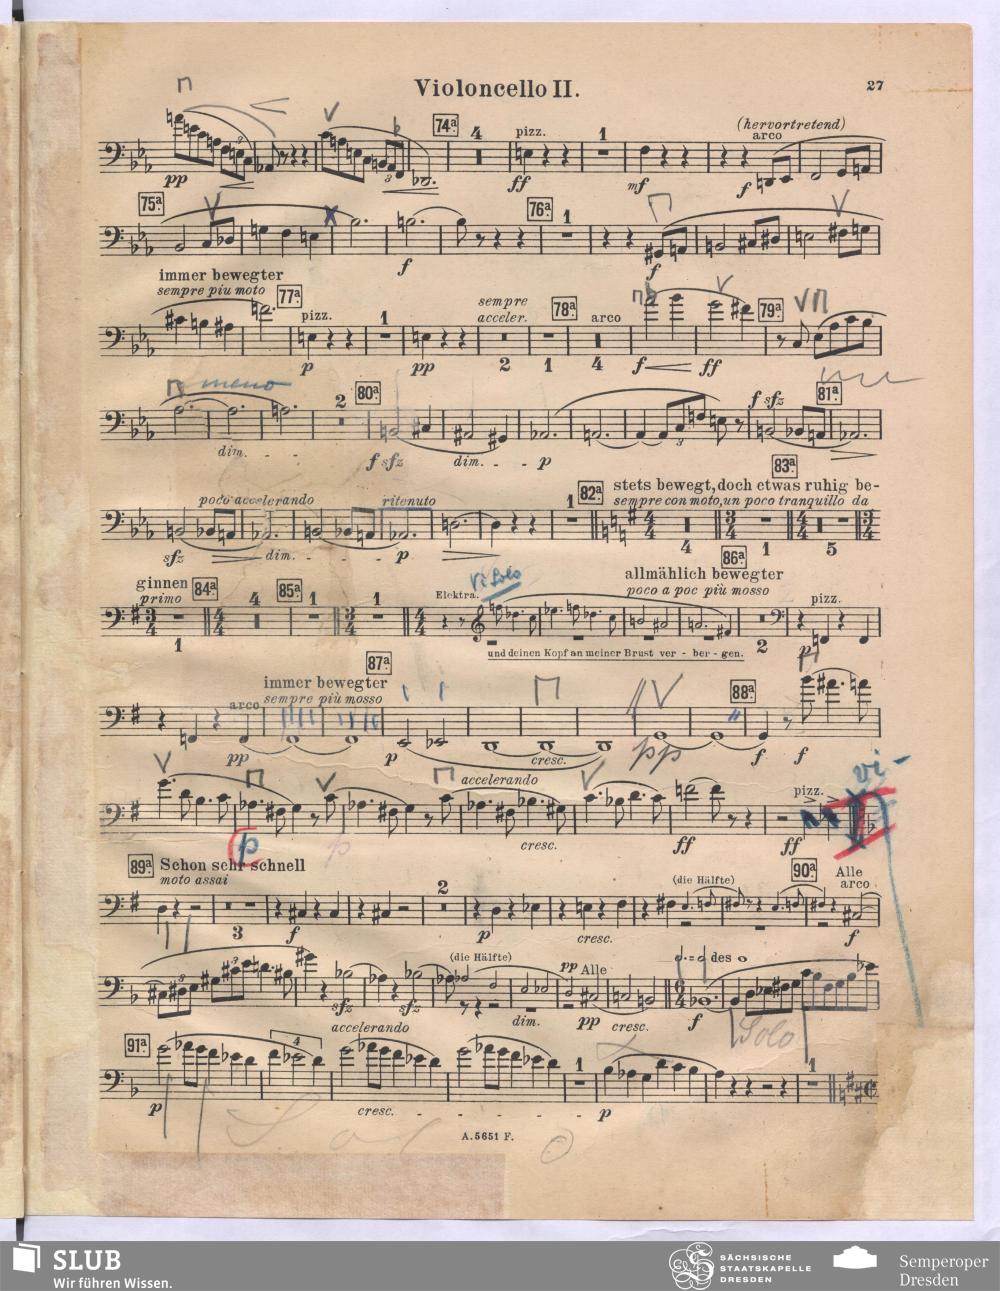 Violoncello II.
27
74a.
4
pizz.
1
(hervortretend)
arco
3
3
pp
ff
mf
f
75a.
76a.
1
f
f
immer bewegter
sempre più moto
77a.
pizz.
1
sempre
acceler.
78a.
arco
79a.
p
pp
2
1
4
f
ff
meno
2
80a.
f sfz
81a.
dim.
f sfz
dim.
p
3
83a.
poco accelerando
ritenuto
1
82a.
stets bewegt, doch etwas ruhig be-
sempre con moto, un poco tranquillo da
sfz
dim.
p
4
1
5
86a.
ginnen
primo
84a.
4
85a.
1
1
Elektra.
Vi Solo
allmählich bewegter
poco a poc più mosso
pizz.
1
und deinen Kopf an meiner Brust ver - ber - gen.
2
p
87a.
immer bewegter
sempre più mosso
arco
88a.
pp
p
cresc.
pp
f
f
accelerando
pizz.
vi-
p
p
cresc.
ff
ff
89a.
Schon sehr schnell
moto assai
2
(die Hälfte)
90a.
Alle
arco
3
f
p
cresc.
f
3
3
(die Hälfte)
pp Alle
des
sfz
sfz
dim.
pp
cresc.
f
Solo
91a.
accelerando
4
1
1
p
cresc.
p
Solo
A. 5651 F.
SLUB
Wir führen Wissen.
SÄCHSISCHE
STAATSKAPELLE
DRESDEN
Semperoper
Dresden